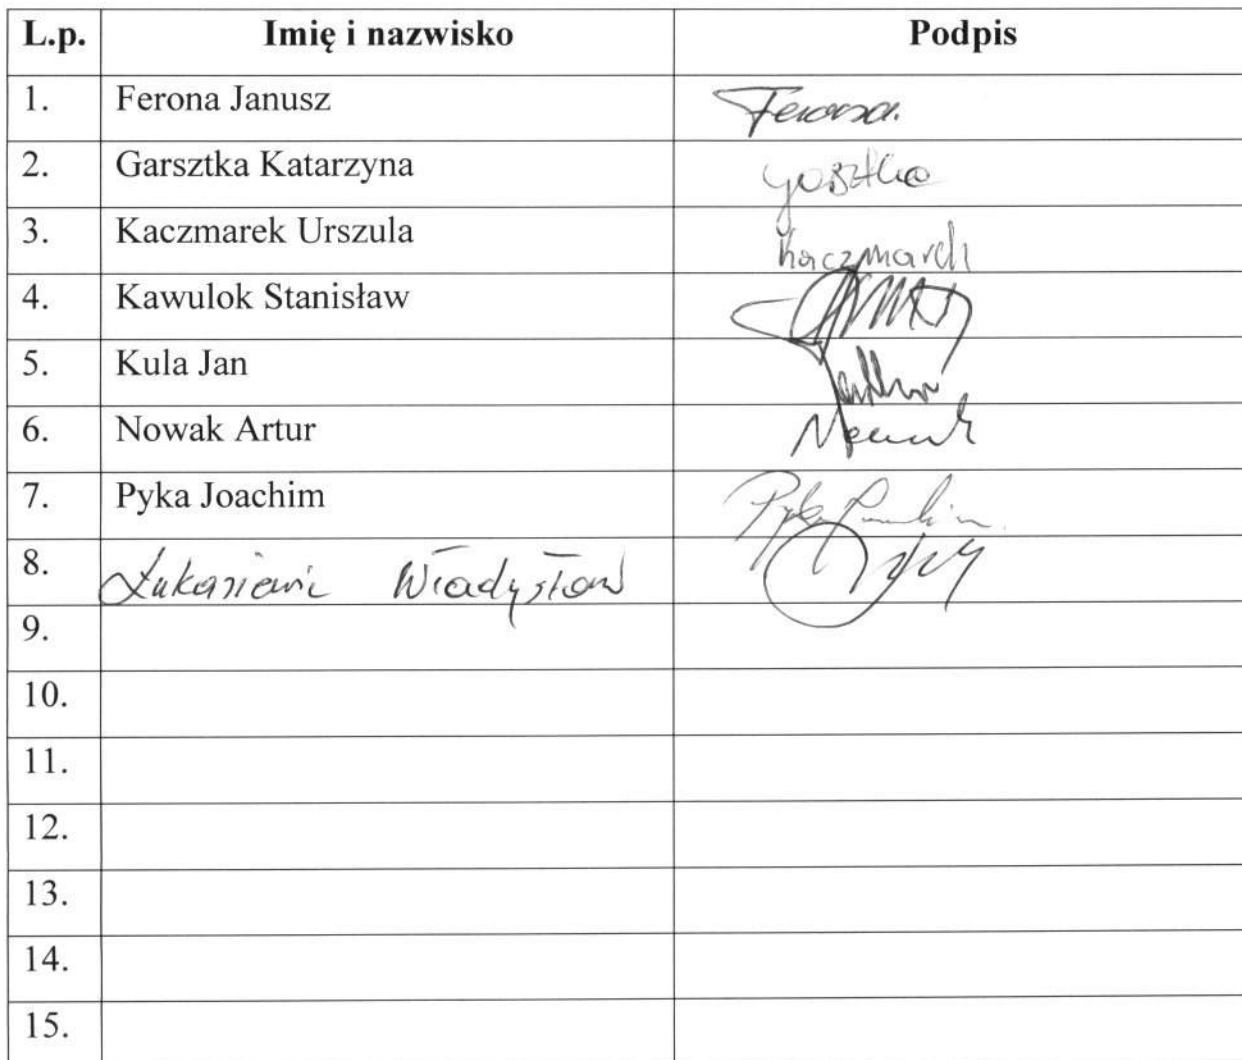 L.p. Imię i nazwisko Podpis
1. Ferona Janusz Ferona.
2. Garsztka Katarzyna
3. Kaczmarek Urszula Kaczmarek
4. Kawulok Stanisław
5. Kula Jan
6. Nowak Artur Nowak
7. Pyka Joachim Pyka Joachim
8. Łukasiewic Władysław
9.
10.
11.
12.
13.
14.
15.